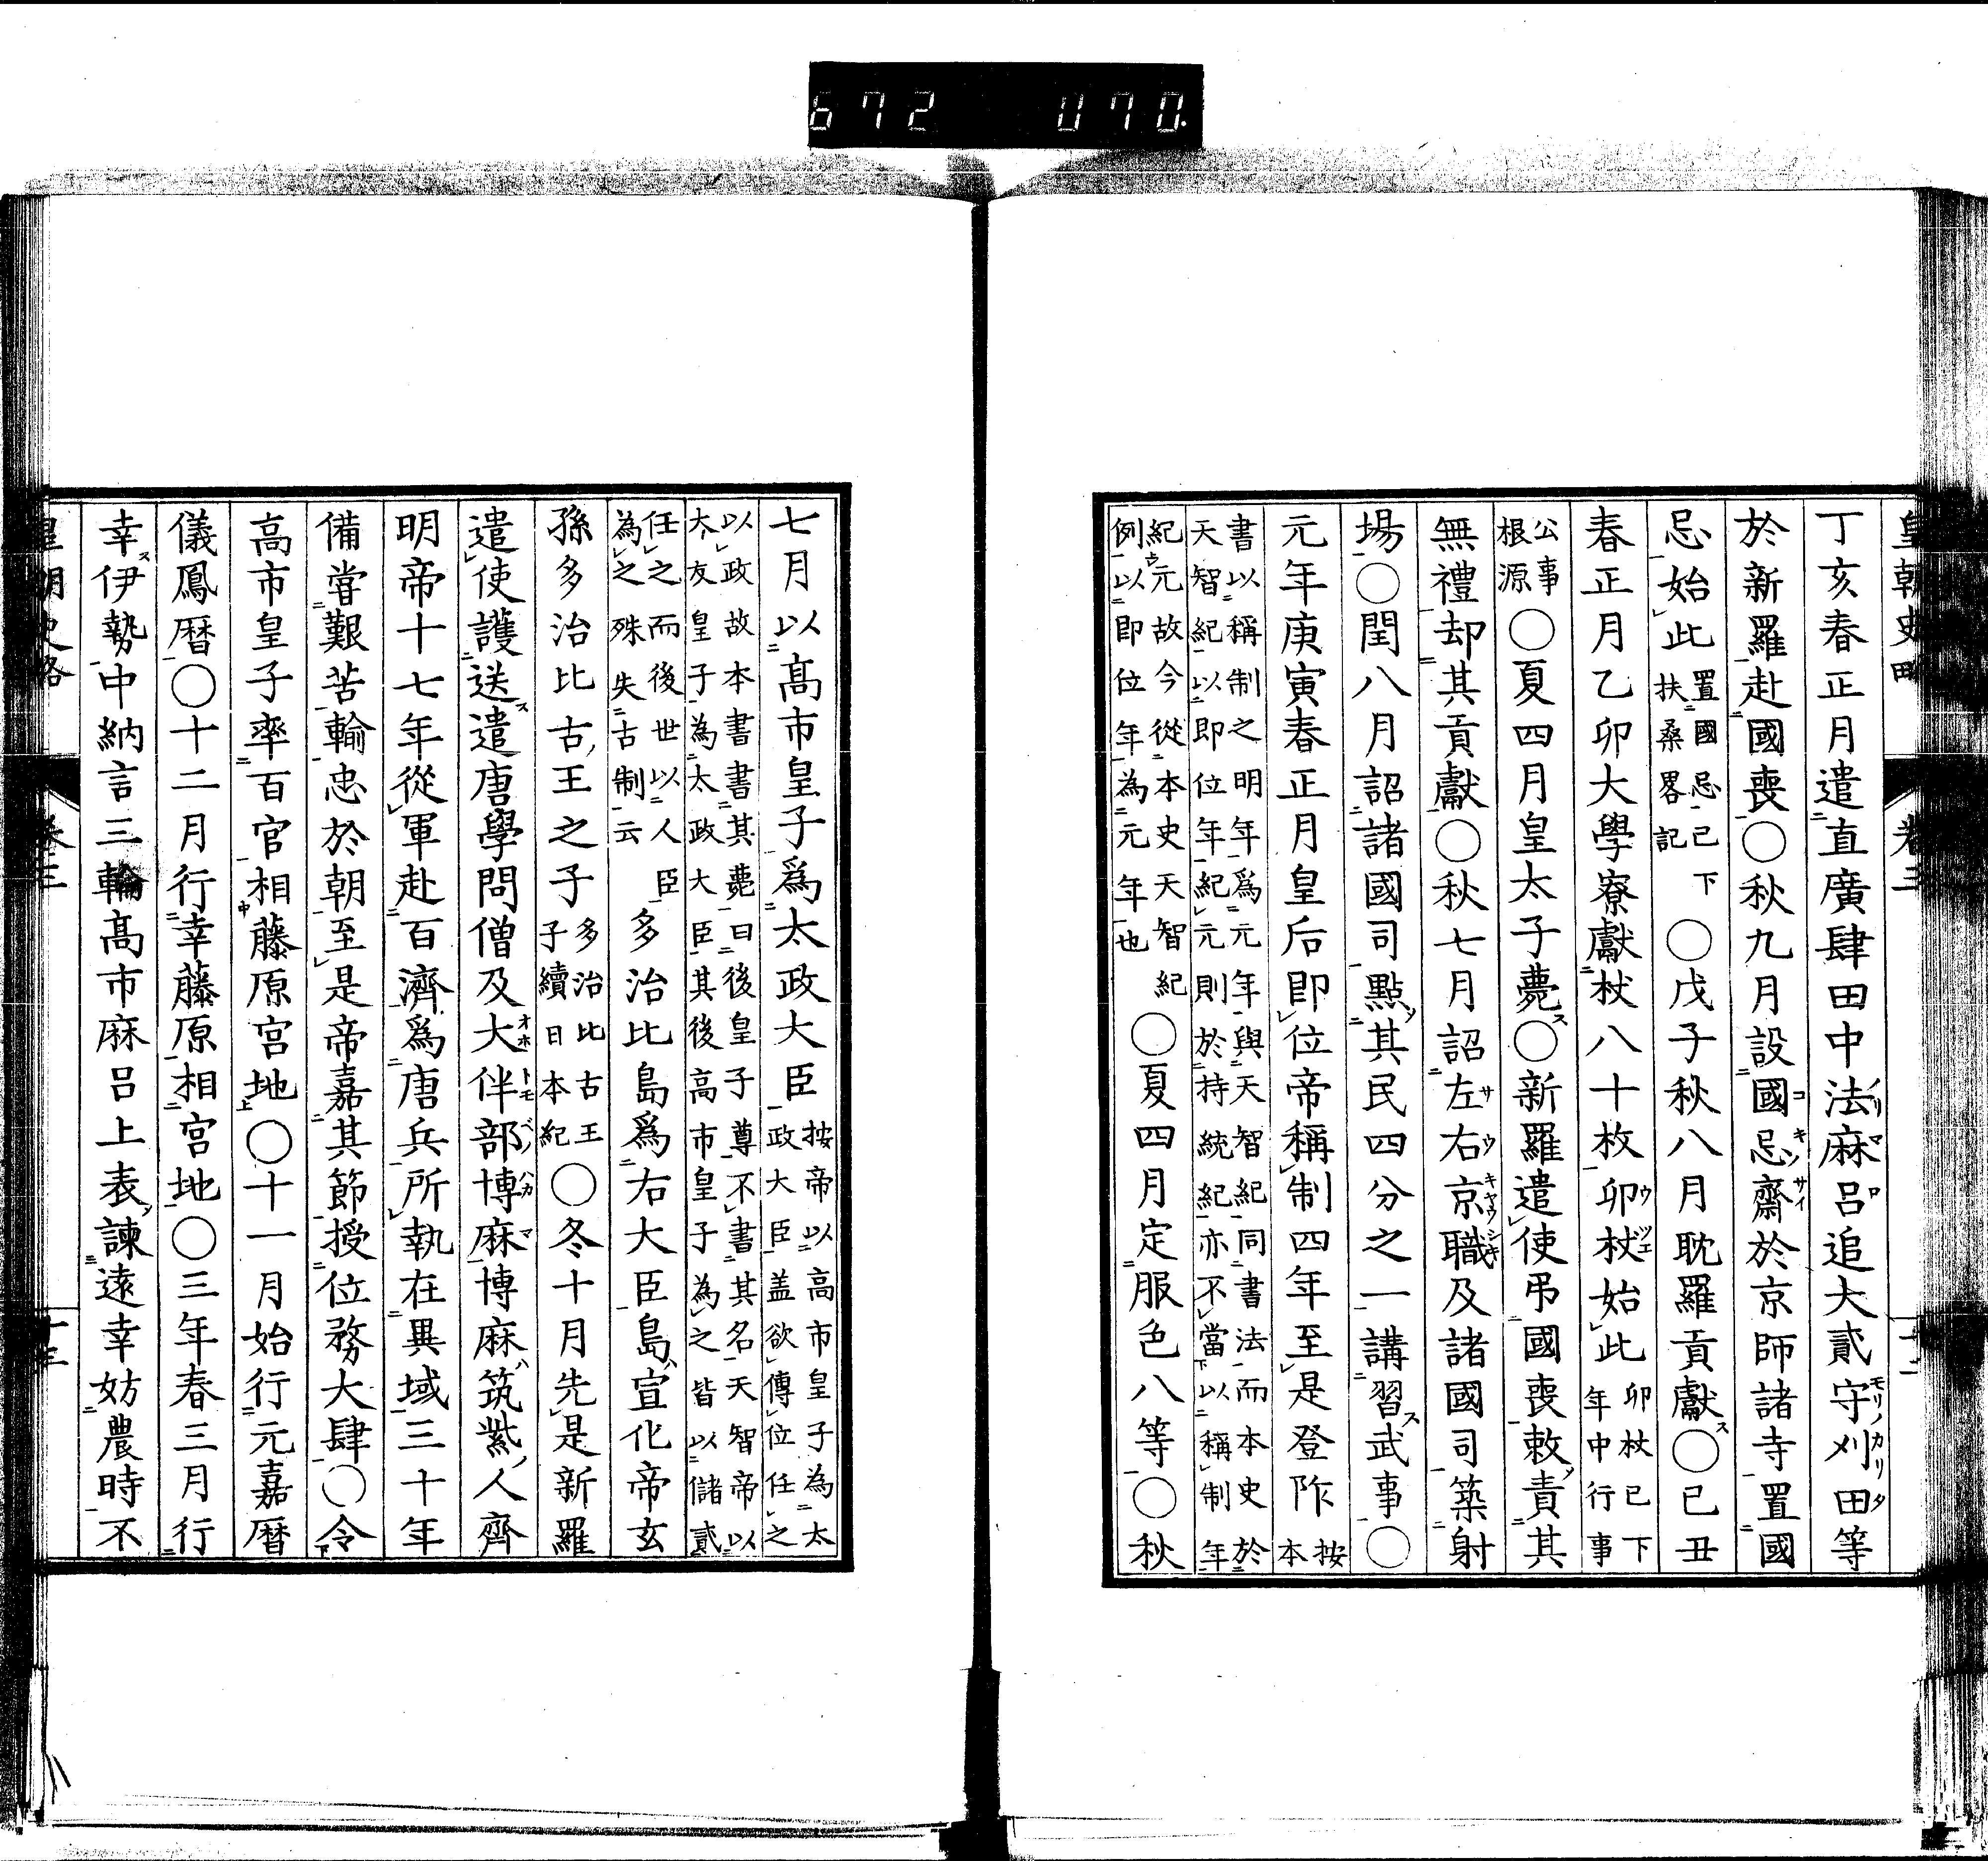 672 070.
皇朝史略 卷三
丁亥春正月遣直廣肆田中法麻呂追大貳守刈田等
於新羅赴國喪〇秋九月設國忌齋於京師諸寺置國
忌始此置國忌已下扶桑畧記〇戊子秋八月耽羅貢獻〇已丑
春正月乙卯大學寮獻杖八十枚卯杖始此卯杖已下年中行事
公事根源〇夏四月皇太子薨〇新羅遣使弔國喪敕責其
無禮却其貢獻〇秋七月詔左右京職及諸國司築射
場〇閏八月詔諸國司點其民四分之一講習武事〇
元年庚寅春正月皇后即位帝稱制四年至是登阼按本
書以稱制之明年爲元年與天智紀同書法而本史於
天智紀以即位年紀元則於持統紀亦不當以稱制年
紀元故今從本史天智紀
例以即位年為元年也〇夏四月定服色八等〇秋
七月以高市皇子爲太政大臣按帝以高市皇子為太政大臣盖欲傳位任之
以政故本書書其薨曰後皇子尊不書其名天智帝以
大友皇子為太政大臣其後高市皇子為之皆以儲貳
任之而後世以人臣
為之殊失古制云多治比島爲右大臣島宣化帝玄
孫多治比古王之子多治比古王子續日本紀〇冬十月先是新羅
遣使護送遣唐學問僧及大伴部博麻博麻筑紫人齊
明帝十七年從軍赴百濟爲唐兵所執在異域三十年
備嘗艱苦輸忠於朝至是帝嘉其節授位務大肆〇令
高市皇子率百官相藤原宮地〇十一月始行元嘉曆
儀鳳曆〇十二月行幸藤原相宮地〇三年春三月行
幸伊勢中納言三輪高市麻呂上表諫遠幸妨農時不
皇朝史略 卷三 十三